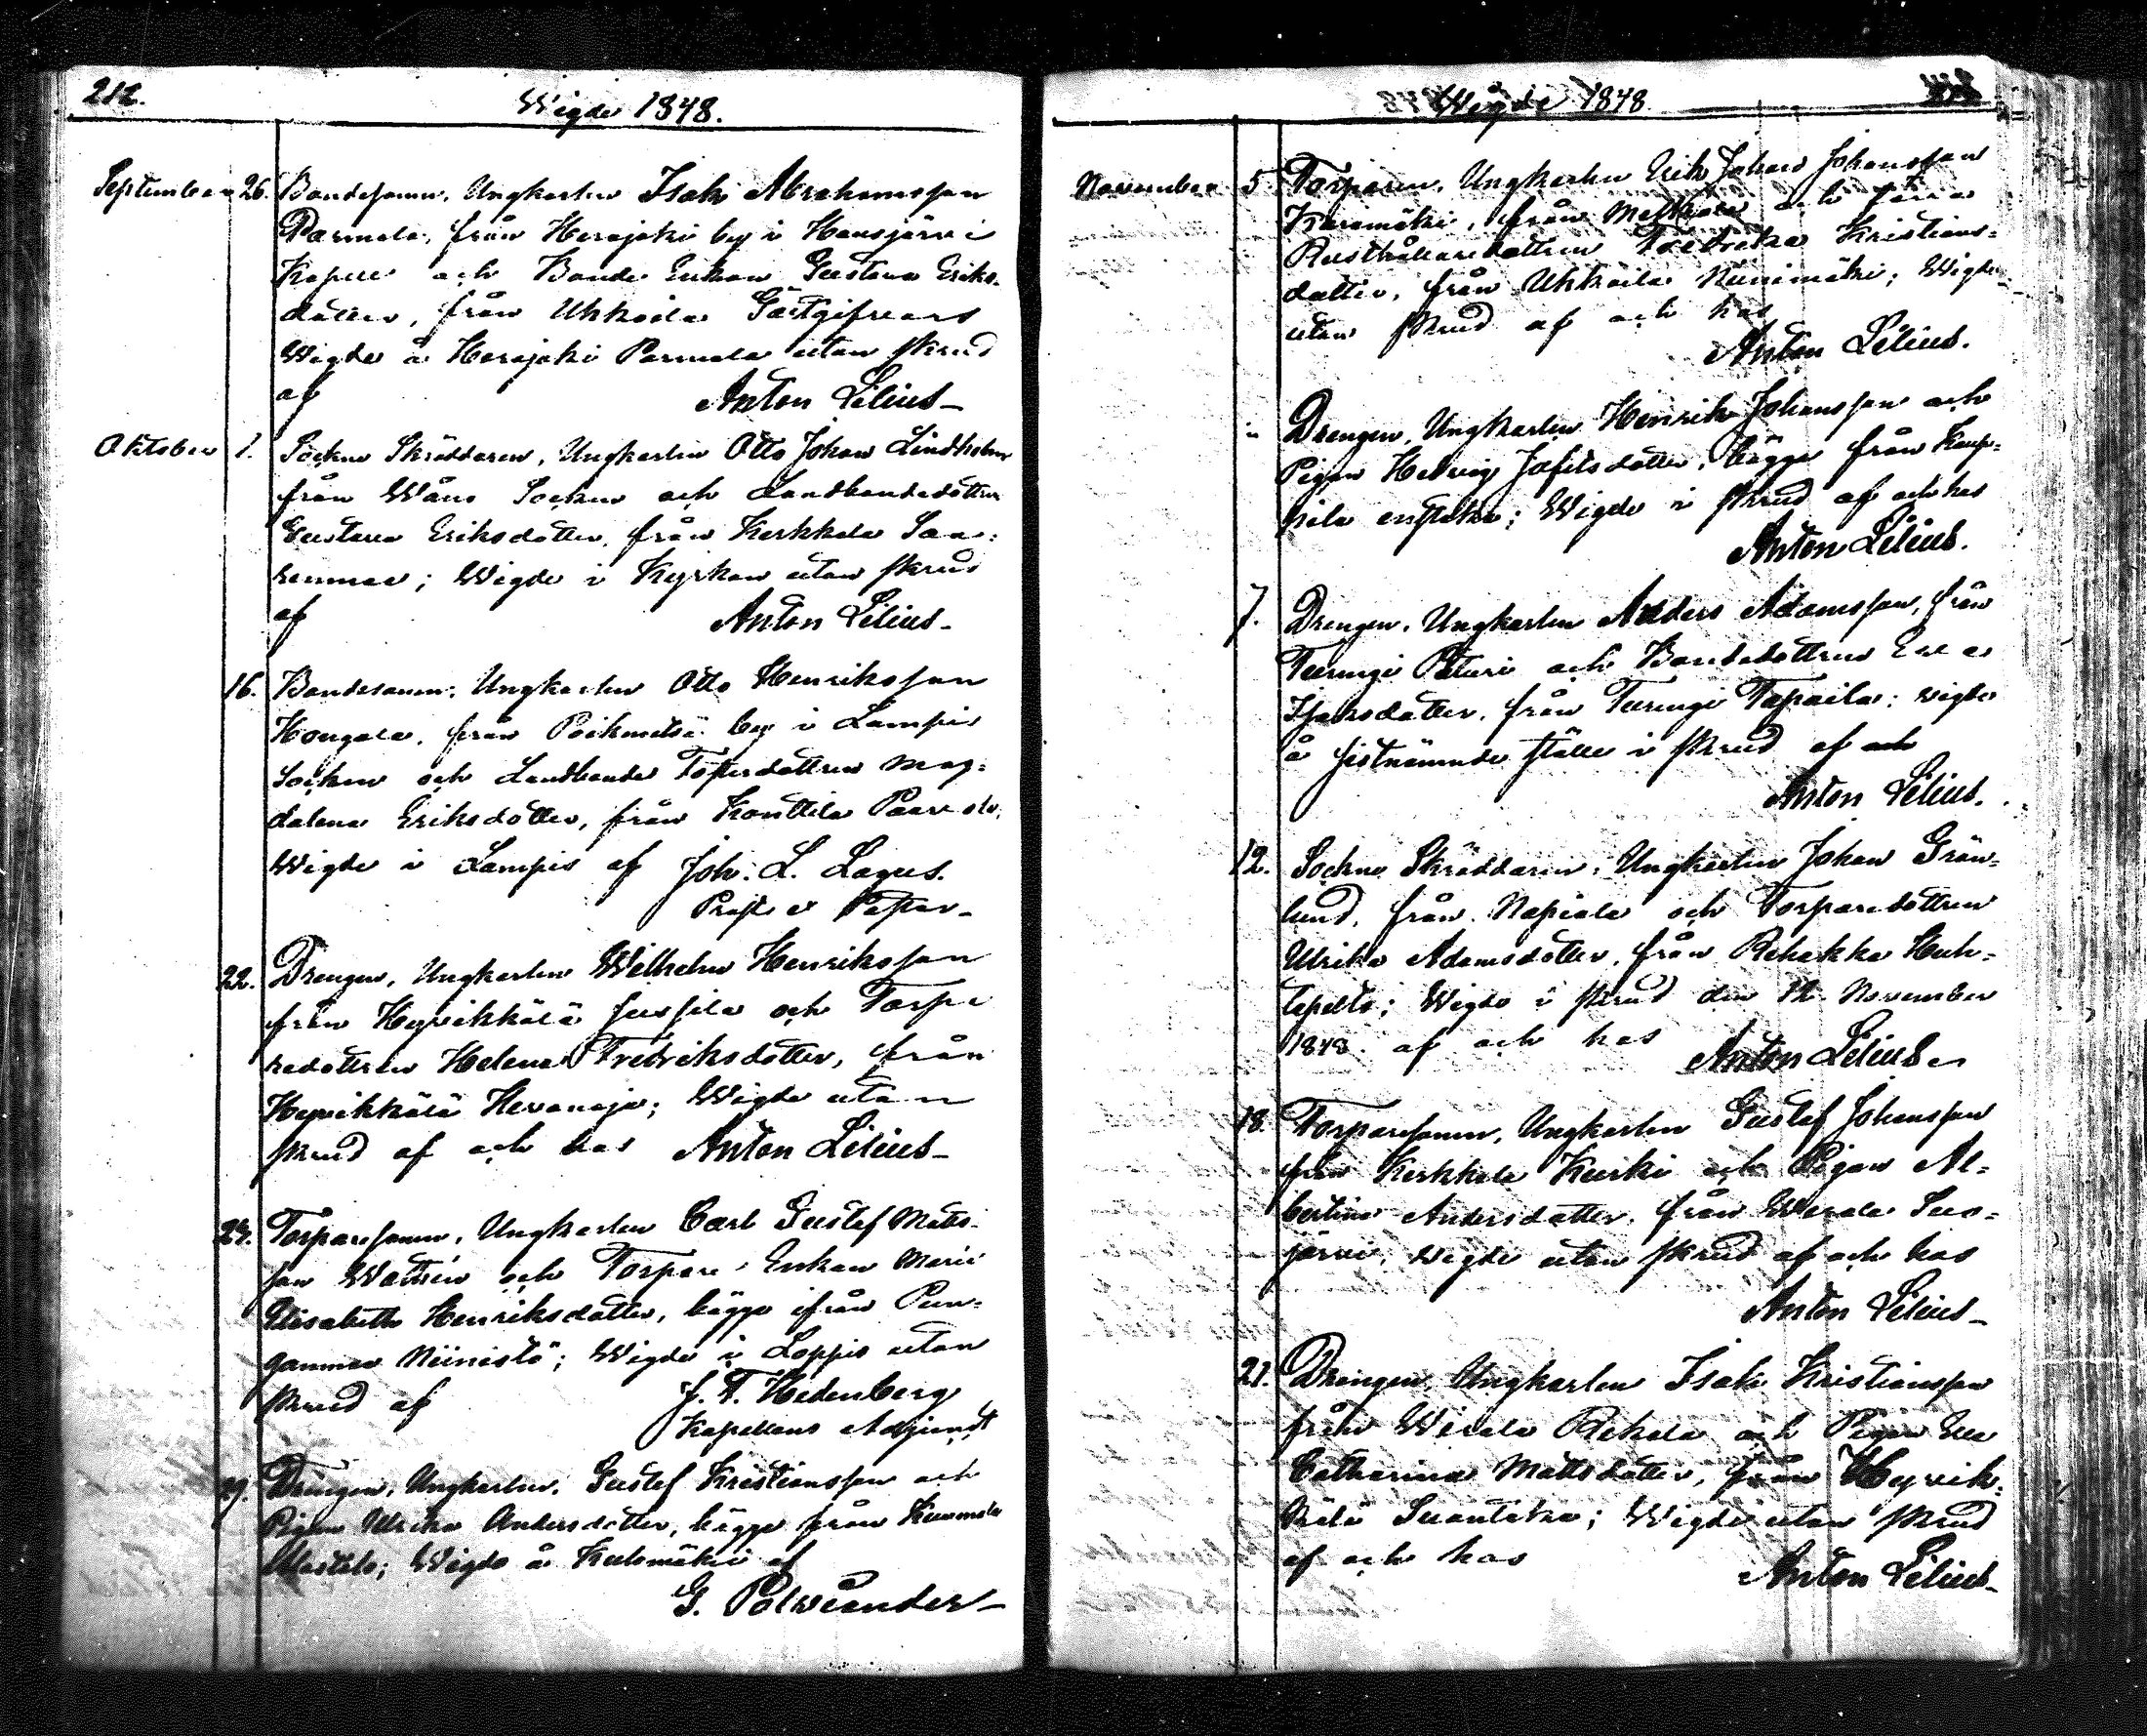 212.
Wigde 1848.
September 26. Bondesonen, Ungkarlen Isak Abrahamsson
Parmala, från Herajoki by i Hausjärvi
Kapell och Bonde Enkan Gustava Eriks-
dotter, från Uhkoila Gästgifvars
Wigde å Herajoki Parmala utan skrud
af
Anton Lilius
Oktober 1. Sockne Skräddaren, Ungkarlen Otto Johan Lindholm
från Wånå Socken och Landbondedottren
Gustava Eriksdotter, från Kerkkola Saa-
renmaa; Wigde i Kyrkan utan skrud
af
Anton Lilius
16. Bondesonen, Ungkarlen Otto Henriksson
Hongala, från Poikmetsä by i Lampis
Socken och Landbonde Fosterdottren Mag-
dalena Eriksdotter, från Konttila Paavola,
Wigde i Lampis af Joh: L. Lagus.
Prost o Pastor
22. Drengen, Ungkarlen Wilhelm Henriksson
från Hyvikkälä Jussila och Torpa-
redottren Helena Fredriksdotter, från
Hyvikkälä Hevonoja; Wigde utan
skrud af och hos Anton Lilius
24. Torparesonen, Ungkarlen Carl Gustaf Matts-
son Wathén och Torpare Enkan Maria
Elisabeth Henriksdotter, bägge ifrån Pun-
gamaa Niinistö; Wigde i Loppis utan
skrud af J. F. Hedenberg
Kapellans Adjunct
29. Drengen, Ungkarlen, Gustaf Kristiansson och
Pigan Ulrika Andersdotter, bägge från Kuumola
Wigde å Kulomäki af
G. Polviander
Wigde 1848
November 5 Torparen, Ungkarlen Erik Johan Johansson
Karamäki, från och förra
Rusthållaredottren Fredrika Kristians-
dotter, från Uhkoila Niinimäki; Wigde
utan skrud af och hos
Anton Lilius.
Drengen, Ungkarlen Henrik Johansson och
Pigan Hedvig Josefsdotter, bägge från Kaup-
pila Wigde i skrud af och hos
Anton Lilius.
7. Drengen, Ungkarlen Anders Adamsson, från
Turengi Pietari och Bondedottren Eva
Isaksdotter, från Turengi Tapaila; wigde
å sistnämnde ställe i skrud af och
Anton Lilius.
12. Sockne Skräddaren, Ungkarlen Johan Grön-
lund, från Napiala och Torparedottren
Ulrika Adamsdotter, från Rehakka Huh-
tapelto; Wigde i skrud den 12 November
1848. af och hos Anton Lilius
18. Torparesonen, Ungkarlen Gustaf Johansson
från Kerkkola Kurki och Pigan Al-
bertina Andersdotter, från Wirala Suo-
järvi, Wigde utan skrud af och hos
Anton Lilius
21. Drengen, Ungkarlen Isak Kristiansson
från Wirala Rekola och Pigan Eva
Catharina Mattsdotter, från Hyvik-
kälä Suontaka; Wigde utan skrud
af och hos Anton Lilius